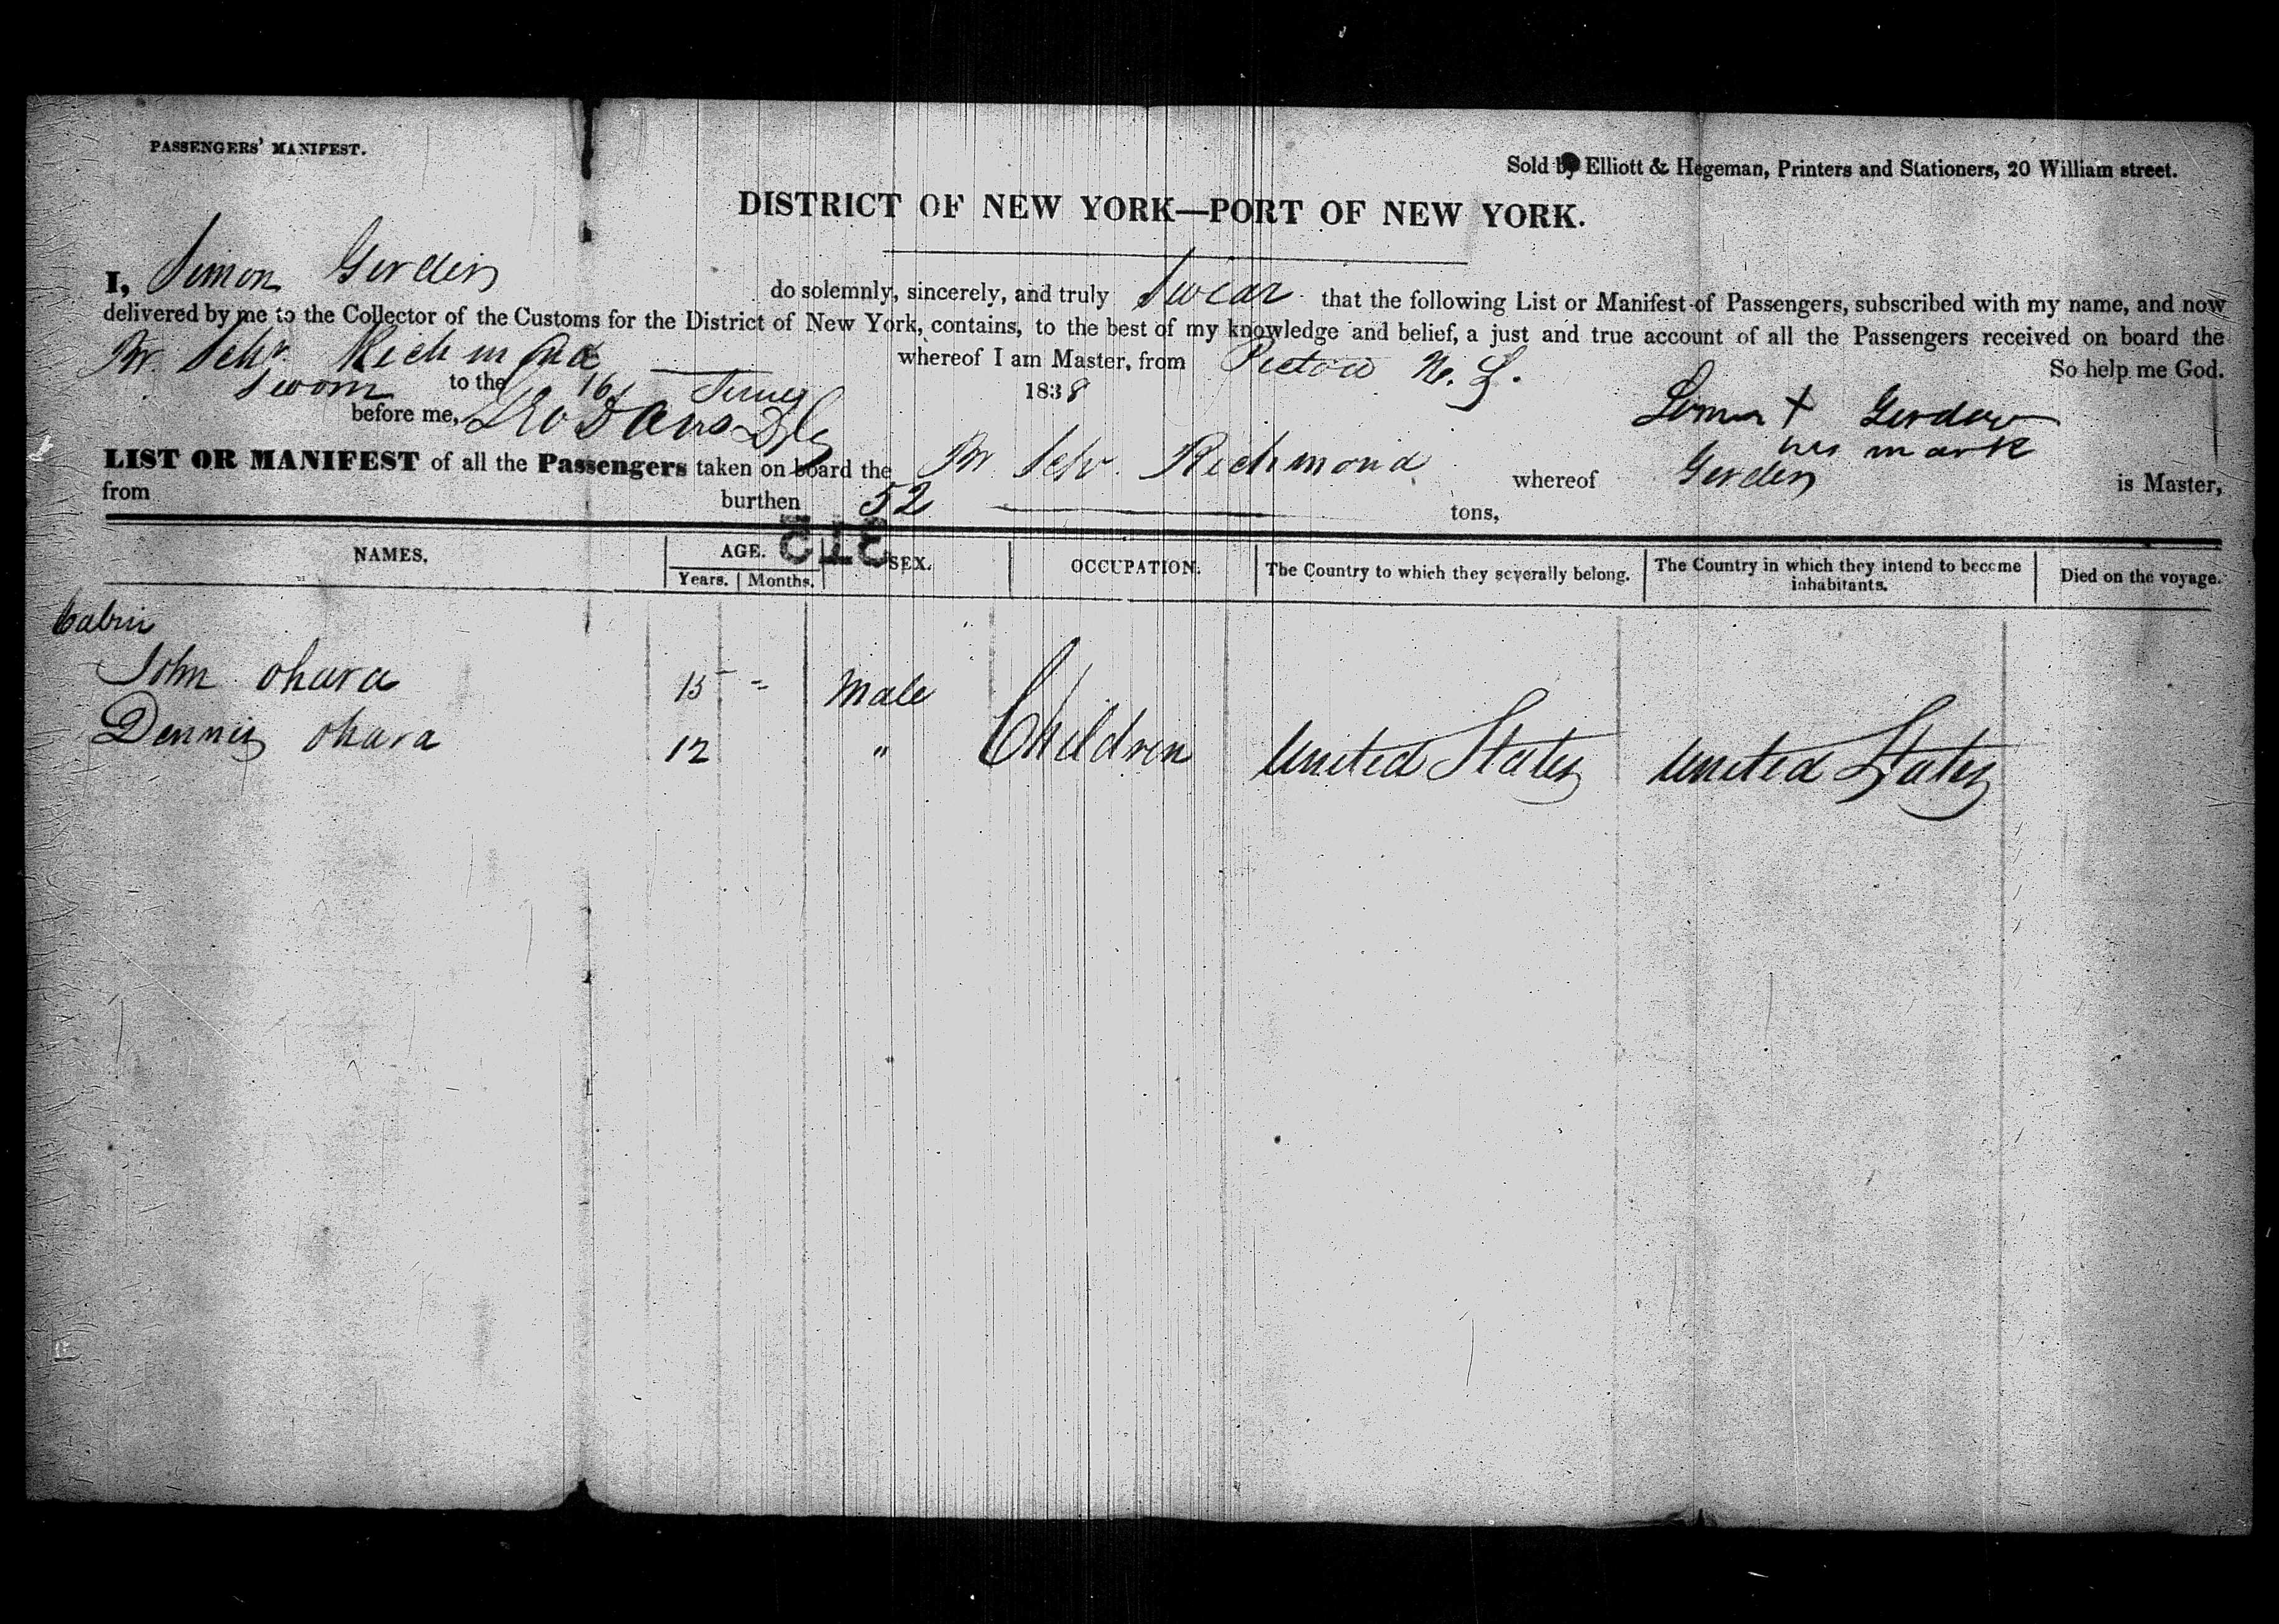 PASSENGERS' MANIFEST.
Sold by Elliott & Hegeman, Printers and Stationers, 20 William street.
DISTRICT OF NEW YORK—PORT OF NEW YORK.
I, Simon Gerden do solemnly, sincerely, and truly Swear that the following List or Manifest of Passengers, subscribed with my name, and now
delivered by me to the Collector of the Customs for the District of New York, contains, to the best of my knowledge and belief, a just and true account of all the Passengers received on board the
Br. Schr. Richmond whereof I am Master, from Pictou N. S. So help me God.
Sworn to the 16 June 1838
before me, Simon + Gerden
his mark
LIST OR MANIFEST of all the Passengers taken on board the Br Schr. Richmond whereof Gerden is Master,
from burthen 52 tons,
312
NAMES. AGE. SEX. OCCUPATION. The Country to which they severally belong. The Country in which they intend to become inhabitants. Died on the voyage.
Years. Months.
Cabin
John ohara 15 " Male
Dennis ohara 12 " Children United States United States